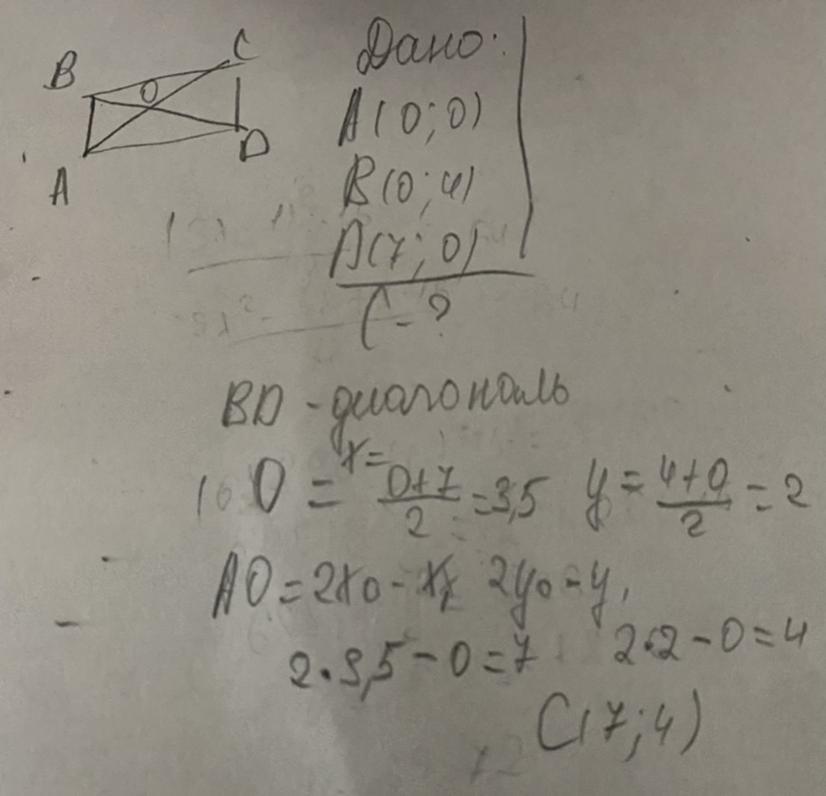 B
C
O
A
D
Дано:
A(0;0)
B(0;4)
D(7;0)
C-?
BD - диагональ
O = x= \frac{0+7}{2} = 3,5 y = \frac{4+0}{2} = 2
AO = 2x₀ - x₁ 2y₀ - y₁
2·3,5 - 0 = 7 2·2 - 0 = 4
C(7;4)